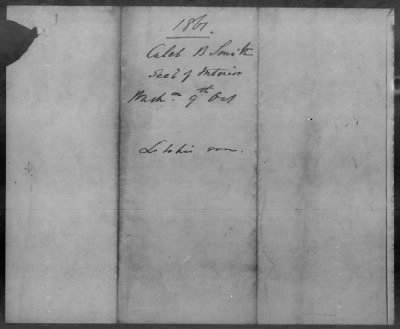 1861.
Caleb B Smith
Sect of Interior
Washn. 9th Oct
L to his son.